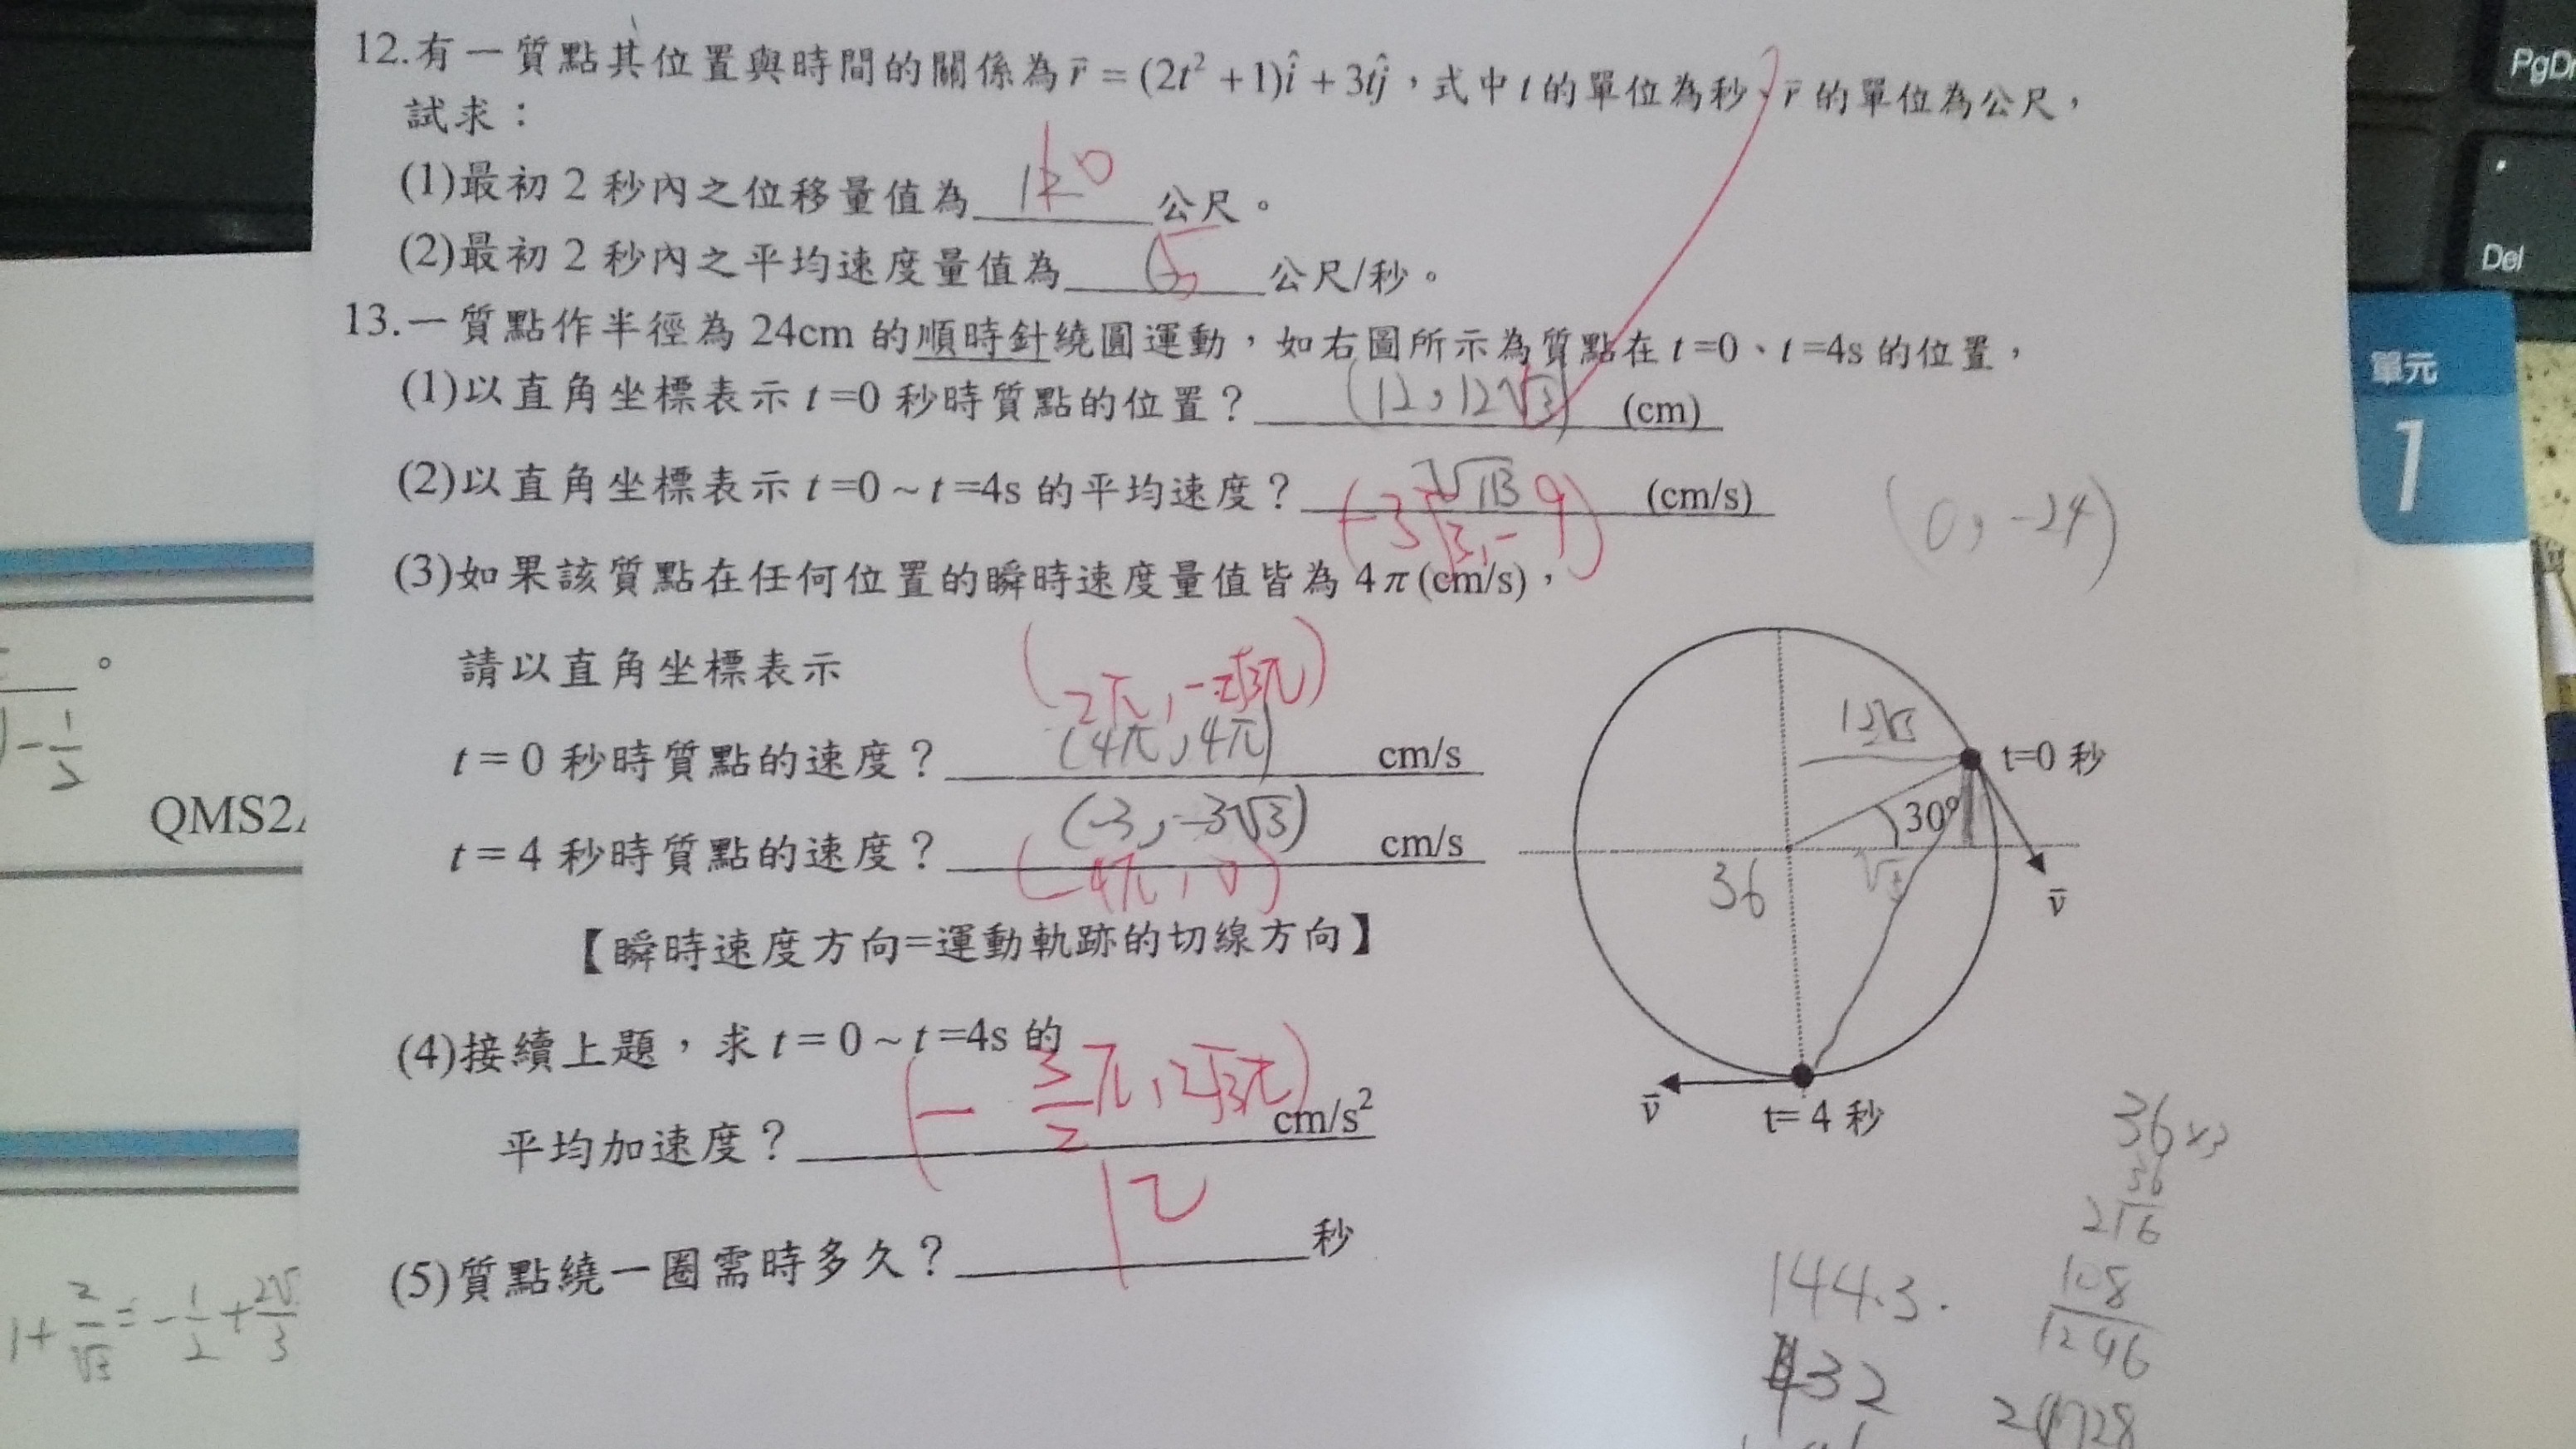 12.有一質點其位置與時間的關係為 r̄ = (2t² + 1)î + 3tĵ，式中 t 的單位為秒、r̄ 的單位為公尺，
試求：
(1)最初 2 秒內之位移量值為 10 公尺。
(2)最初 2 秒內之平均速度量值為 5 公尺/秒。
13.一質點作半徑為 24cm 的順時針繞圓運動，如右圖所示為質點在 t=0、t=4s 的位置，
(1)以直角坐標表示 t=0 秒時質點的位置？ (12, 12√3) (cm)
(2)以直角坐標表示 t=0 ~ t=4s 的平均速度？ (-3√3, -9) (cm/s)
(0, -24)
(3)如果該質點在任何位置的瞬時速度量值皆為 4π(cm/s)，
請以直角坐標表示
(2π, -2√3π)
t = 0 秒時質點的速度？ (4π, 4π) cm/s
t = 4 秒時質點的速度？ (-3, -3√3) cm/s
(-4π, 0)
【瞬時速度方向=運動軌跡的切線方向】
(4)接續上題，求 t = 0 ~ t =4s 的
平均加速度？ (-3/2π, 2√3π) cm/s²
(5)質點繞一圈需時多久？ 12 秒
12√3
t=0 秒
30°
v̄
36
√3
v̄
t= 4 秒
36×3
36
216
108
1296
144.3.
432
單元
1
PgDn
Del
QMS2
1+2/√3=-1/2+2√3/3
-1/2